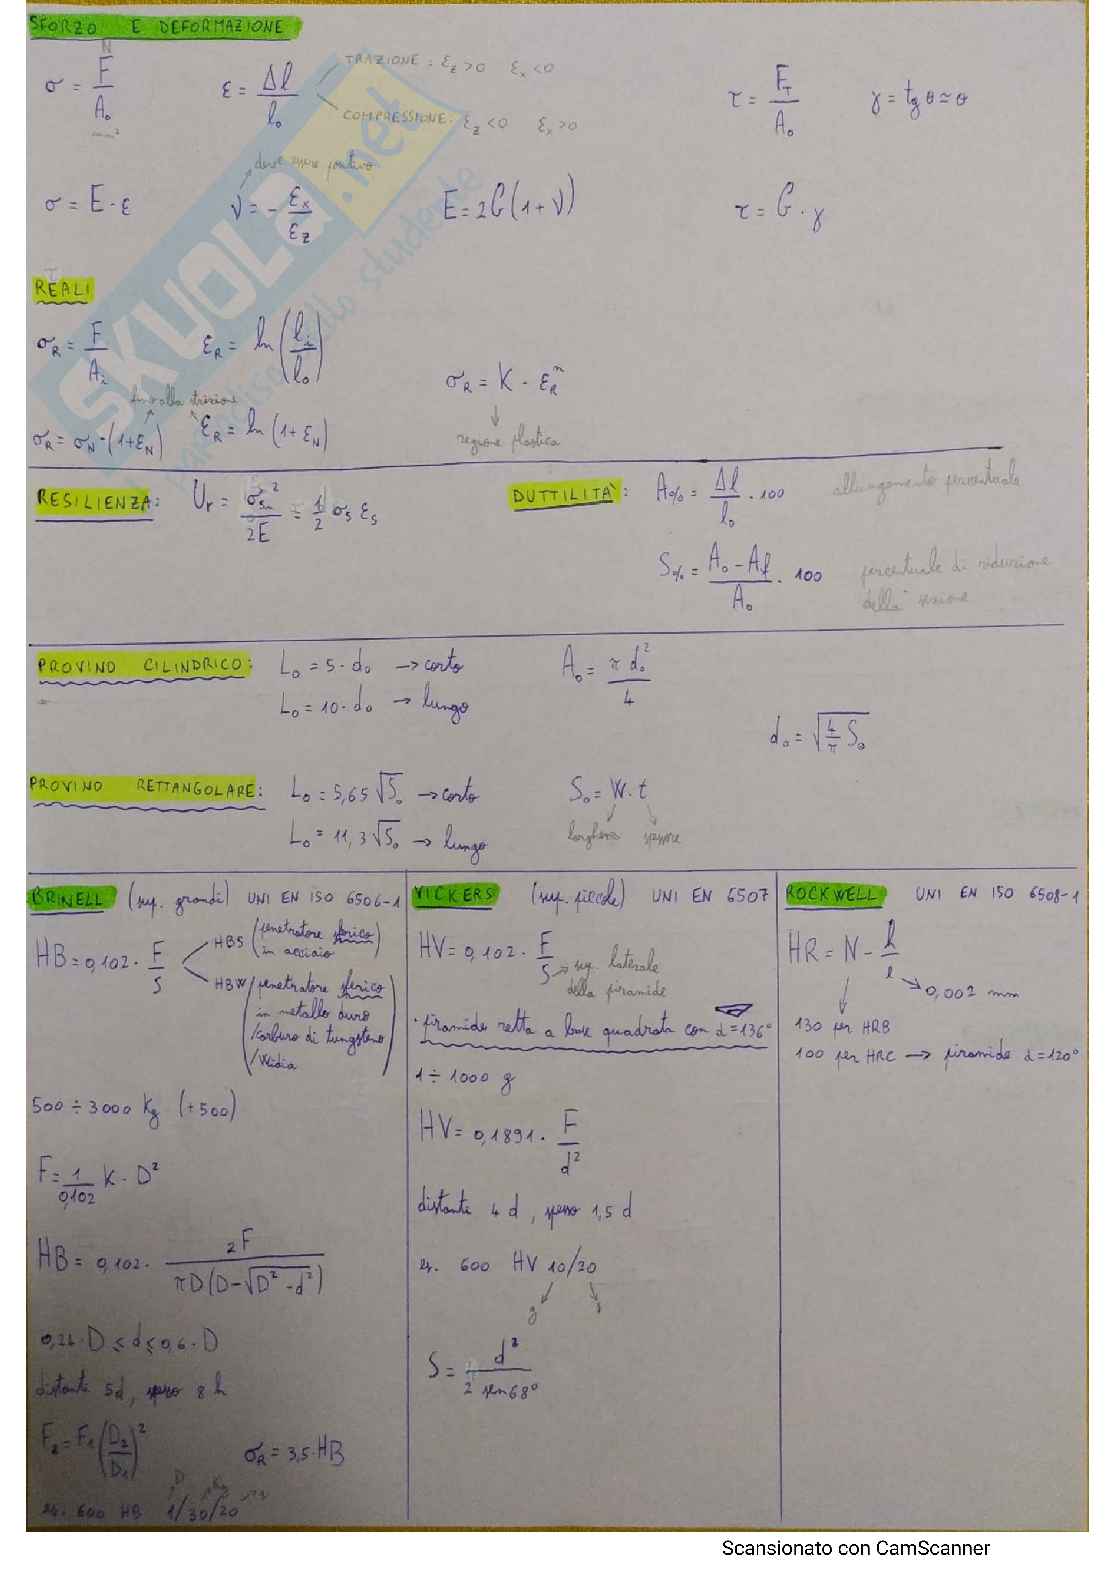 SFORZO E DEFORMAZIONE
σ = F/A₀ N mm²
ε = Δl/l₀
TRAZIONE: ε_z > 0 ε_x < 0
COMPRESSIONE: ε_z < 0 ε_x > 0
τ = F_T/A₀
γ = tg θ ≃ θ
deve essere positivo
σ = E · ε
ν = - ε_x/ε_z
E = 2G(1+ν)
τ = G · γ
REALI
σ_R = F/A_i
ε_R = ln(l_i/l₀)
σ_R = K · ε_R^n
regione plastica
fino alla strizione
σ_R = σ_N · (1+ε_N)
ε_R = ln(1+ε_N)
RESILIENZA: U_r = σ_sn²/2E = 1/2 σ_s ε_s
DUTTILITÀ: A% = Δl/l₀ · 100 allungamento percentuale
S% = (A₀ - A_f)/A₀ · 100 percentuale di riduzione
della sezione
PROVINO CILINDRICO: L₀ = 5 · d₀ → corto
L₀ = 10 · d₀ → lungo
A₀ = π d₀²/4
d₀ = √(4/π S₀)
PROVINO RETTANGOLARE: L₀ = 5,65 √S₀ → corto
L₀ = 11,3 √S₀ → lungo
S₀ = W · t
larghezza spessore
BRINELL (sup. grandi) UNI EN ISO 6506-1
HB = 0,102 · F/S
HBS (penetratore sferico
in acciaio)
HBW (penetratore sferico
in metallo duro
/carburo di tungsteno
/Widia)
500 ÷ 3000 Kg (+500)
F = 1/0,102 K · D²
HB = 0,102 · 2F/(πD(D-√(D²-d²)))
0,24 · D ≤ d ≤ 0,6 · D
distante 5d, spesso 8h
F₂ = F₁(D₂/D₁)²
σ_R = 3,5 · HB
D Kg
es. 600 HB 1/30/20
VICKERS (sup. piccole) UNI EN 6507
HV = 0,102 · F/S
sup. laterale
della piramide
· piramide retta a base quadrata con α = 136°
1 ÷ 1000 g
HV = 0,1891 · F/d²
distante 4d, spesso 1,5 d
es. 600 HV 10/20
g s
S = d²/(2 sen 68°)
ROCKWELL UNI EN ISO 6508-1
HR = N - h/e
0,002 mm
130 per HRB
100 per HRC → piramide α = 120°
SKUOLA.net
Scansionato con CamScanner